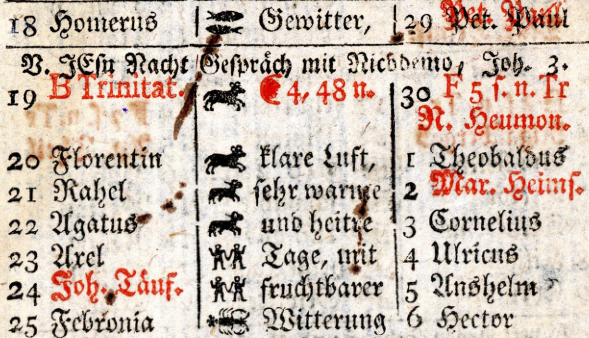 18 Homerus Gewitter, 29 Pet. Paul
V. JEsu Nacht Gespräch mit Nicodemo, Joh. 3.
19 B Trinitat. C 4, 48 n. 30 F 5 s. n. Tr
N. Heumon.
20 Florentin klare Luft, 1 Theobaldus
21 Rahel sehr warme 2 Mar. Heims.
22 Agatus und heitre 3 Cornelius
23 Axel Tage, mit 4 Ulricus
24 Joh. Täuf. fruchtbarer 5 Anshelm
25 Febronia Witterung 6 Hector